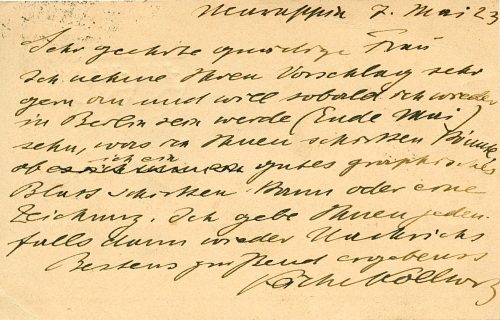 Neuruppin 7. Mai 23
Sehr geehrte gnädige Frau
Ich nehme Ihren Vorschlag sehr
gern an und will sobald ich wieder
in Berlin sein werde (Ende Mai)
sehn, was ich Ihnen schicken könnte
ob ich ein gutes graphisches
Blatt schicken kann oder eine
Zeichnung. Ich gebe Ihnen jeden-
falls dann wieder Nachricht
Bestens grüßend ergebenst
Käthe Kollwitz